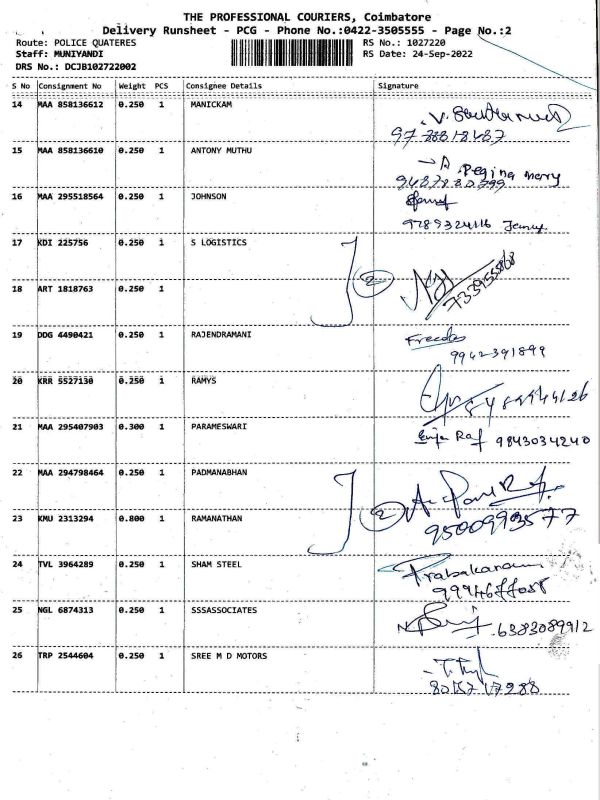 THE PROFESSIONAL COURIERS, Coimbatore
Delivery Runsheet - PCG - Phone No.:0422-3505555 - Page No.:2
Route: POLICE QUATERES RS No.: 1027220
Staff: MUNIYANDI RS Date: 24-Sep-2022
DRS No.: DCJB102722002
S No Consignment No Weight PCS Consignee Details Signature
14 MAA 858136612 0.250 1 MANICKAM
15 MAA 858136610 0.250 1 ANTONY MUTHU
A. Regina mary
16 MAA 295518564 0.250 1 JOHNSON
9789324116
17 KDI 225756 0.250 1 S LOGISTICS
2
18 ART 1818763 0.250 1
19 DDG 4490421 0.250 1 RAJENDRAMANI
9942-391899
20 KRR 5527130 0.250 1 RAMYS
21 MAA 295407903 0.300 1 PARAMESWARI
Raj 9843034240
22 MAA 294798464 0.250 1 PADMANABHAN
2
23 KMU 2313294 0.800 1 RAMANATHAN
9500993577
24 TVL 3964289 0.250 1 SHAM STEEL
Prabakaran
25 NGL 6874313 0.250 1 SSSASSOCIATES
6383089912
26 TRP 2544604 0.250 1 SREE M D MOTORS